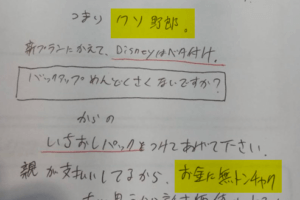 つまり クソ野郎。
新プランにかえて、Disneyはベタ付け。
バックアップめんどくさくないですか?
からの
いちおしパックをつけてあげて下さい。
親が支払いしてるから、お金に無トンチャク